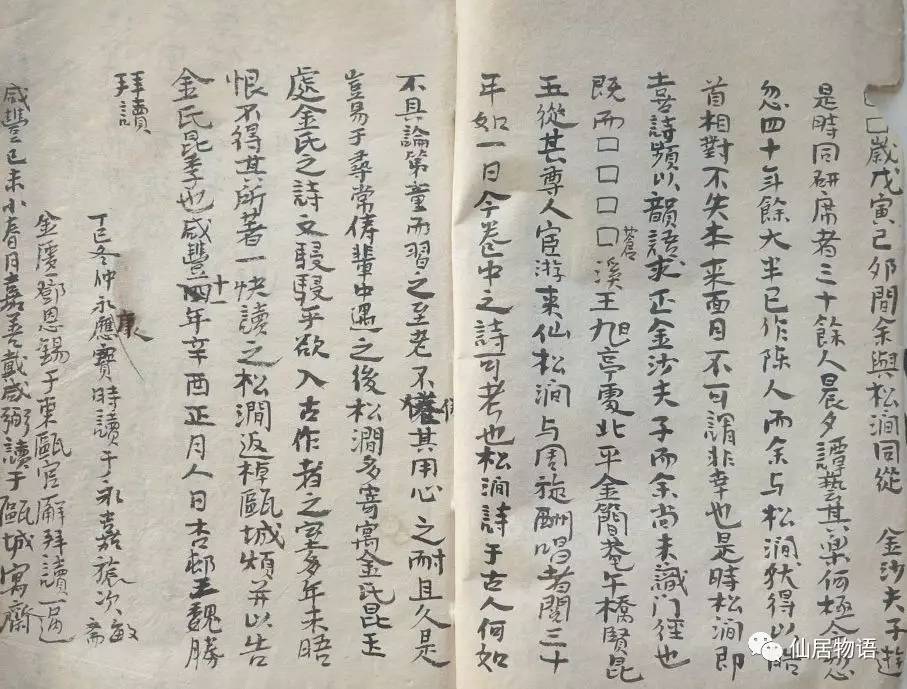 歲戊寅己卯間余與松澗同從 金沙夫子遊
是時同研席者三十餘人晨夕譚藝其樂何極今忽
忽四十年餘大半已作陈人而余与松澗犹得以皓
首相對不失本来面目不可謂非幸也是時松澗即
喜詩頻以韻語求正金沙夫子而余尚未識门徑也
既而口口口口蒼溪王旭亭雯北平金簡菴午橋賢昆
玉從其尊人宦游来仙松澗与周旋酬唱者閱三十
年如一日今卷中之詩可考也松澗詩于古人何如
不具論第童而習之至老不倦其用心之耐且久是
豈易于尋常俦輩中遇之後松澗多寄寓金氏昆玉
處金氏之詩文駸駸乎欲入古作者之室多年未晤
恨不得其所著一快讀之松澗返棹甌城煩并以告
金氏昆季也咸豐十一年辛酉正月人日杏邨王魏勝
拜讀
丁巳冬仲永康應寶時讀于永嘉旅次敏齋
金匱鄧恩錫于東甌官廨拜讀一過
咸豐己未小春月嘉善戴咸弼讀于甌城寓齋
仙居物语